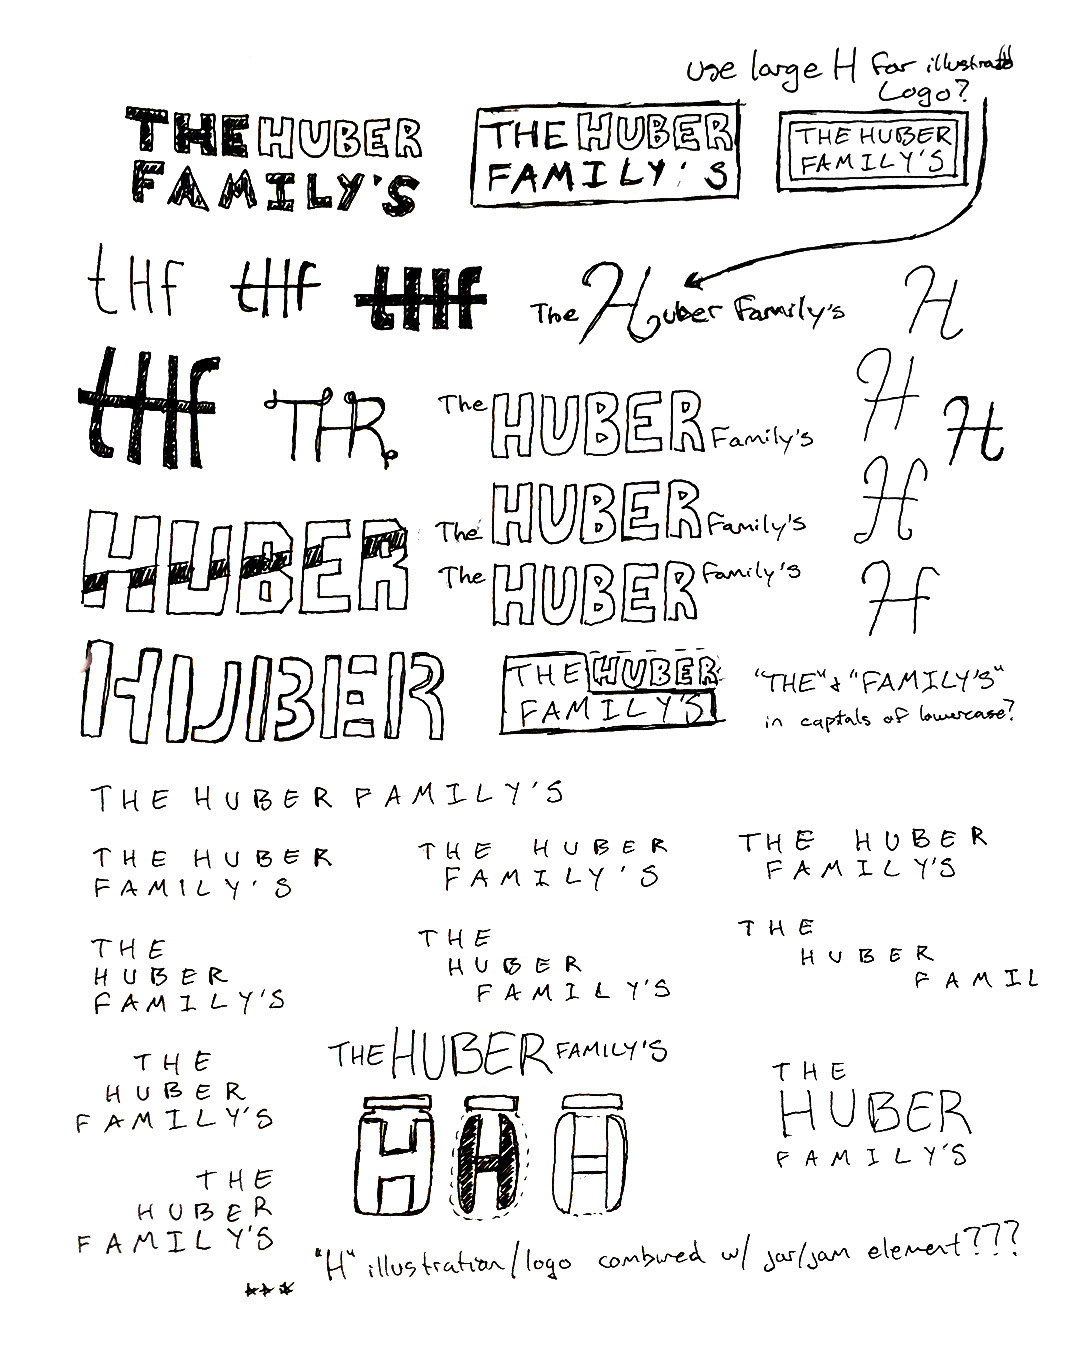 use large H for illustrated
Logo?
THE HUBER
FAMILY'S
THE HUBER
FAMILY'S
THE HUBER
FAMILY'S
tHf
tHf
tHf
The Huber Family's
H
tHf
THR.
The HUBER Family's
H
H
HUBER
The HUBER Family's
H
The HUBER Family's
H
HUBER
THE HUBER
FAMILY'S
"THE" & "FAMILY'S"
in captals of lowercase?
THE HUBER FAMILY'S
THE HUBER
FAMILY'S
THE HUBER
FAMILY'S
THE HUBER
FAMILY'S
THE
HUBER
FAMILY'S
THE
HUBER
FAMILY'S
THE
HUBER
FAMIL
THE
HUBER
FAMILY'S
THE HUBER FAMILY'S
H
H
H
THE
HUBER
FAMILY'S
THE
HUBER
FAMILY'S
"H" illustration/logo combined w/ jar/jam element???